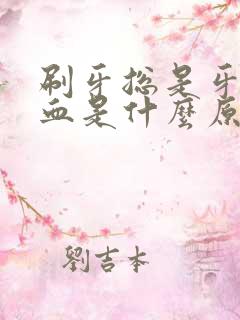 刷牙总是牙
血是什麼原
劉吉本